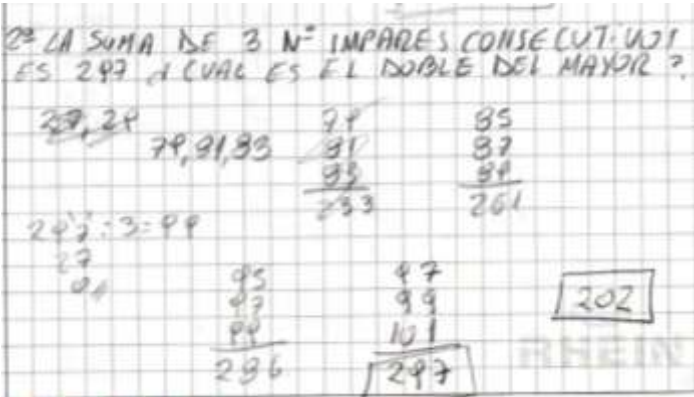 2º LA SUMA DE 3 Nº IMPARES CONSECUTIVOS
ES 297 ¿ CUAL ES EL DOBLE DEL MAYOR ?
79, 81, 83
79
81
83
233
85
87
89
261
297 : 3 = 99
27
95
97
99
286
97
99
101
297
202
RHEIN